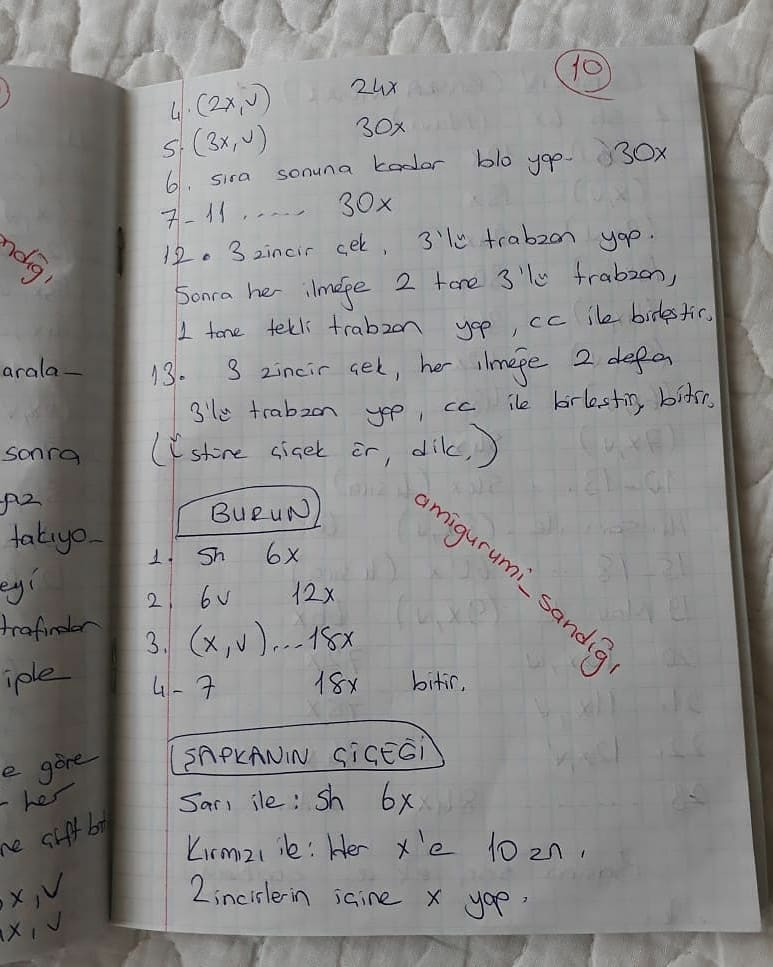 10
4. (2x, v) 24x
5. (3x, v) 30x
6. sıra sonuna kadar blo yap. 30x
7-11 ..... 30x
12. 3 zincir çek, 3'lü trabzan yap.
Sonra her ilmeğe 2 tane 3'lü trabzan,
1 tane tekli trabzan yap, cc ile birleştir.
13. 3 zincir çek, her ilmeğe 2 defa
3'lü trabzan yap, cc ile birleştir, bitir.
(Üstüne çiçek ör, dik.)
BURUN
1. Sh 6x
2. 6v 12x
3. (x, v)... 18x
4-7 18x bitir.
amigurumi_sandığı
ŞAPKANIN ÇİÇEĞİ
Sarı ile: Sh 6x
Kırmızı ile: Her x'e 10 zn,
Zincirlerin içine x yap.
ndığı
arala-
sonra
takıyo-
eyi
trafından
iple
e göre
- her
ne çift
x, v
x, v